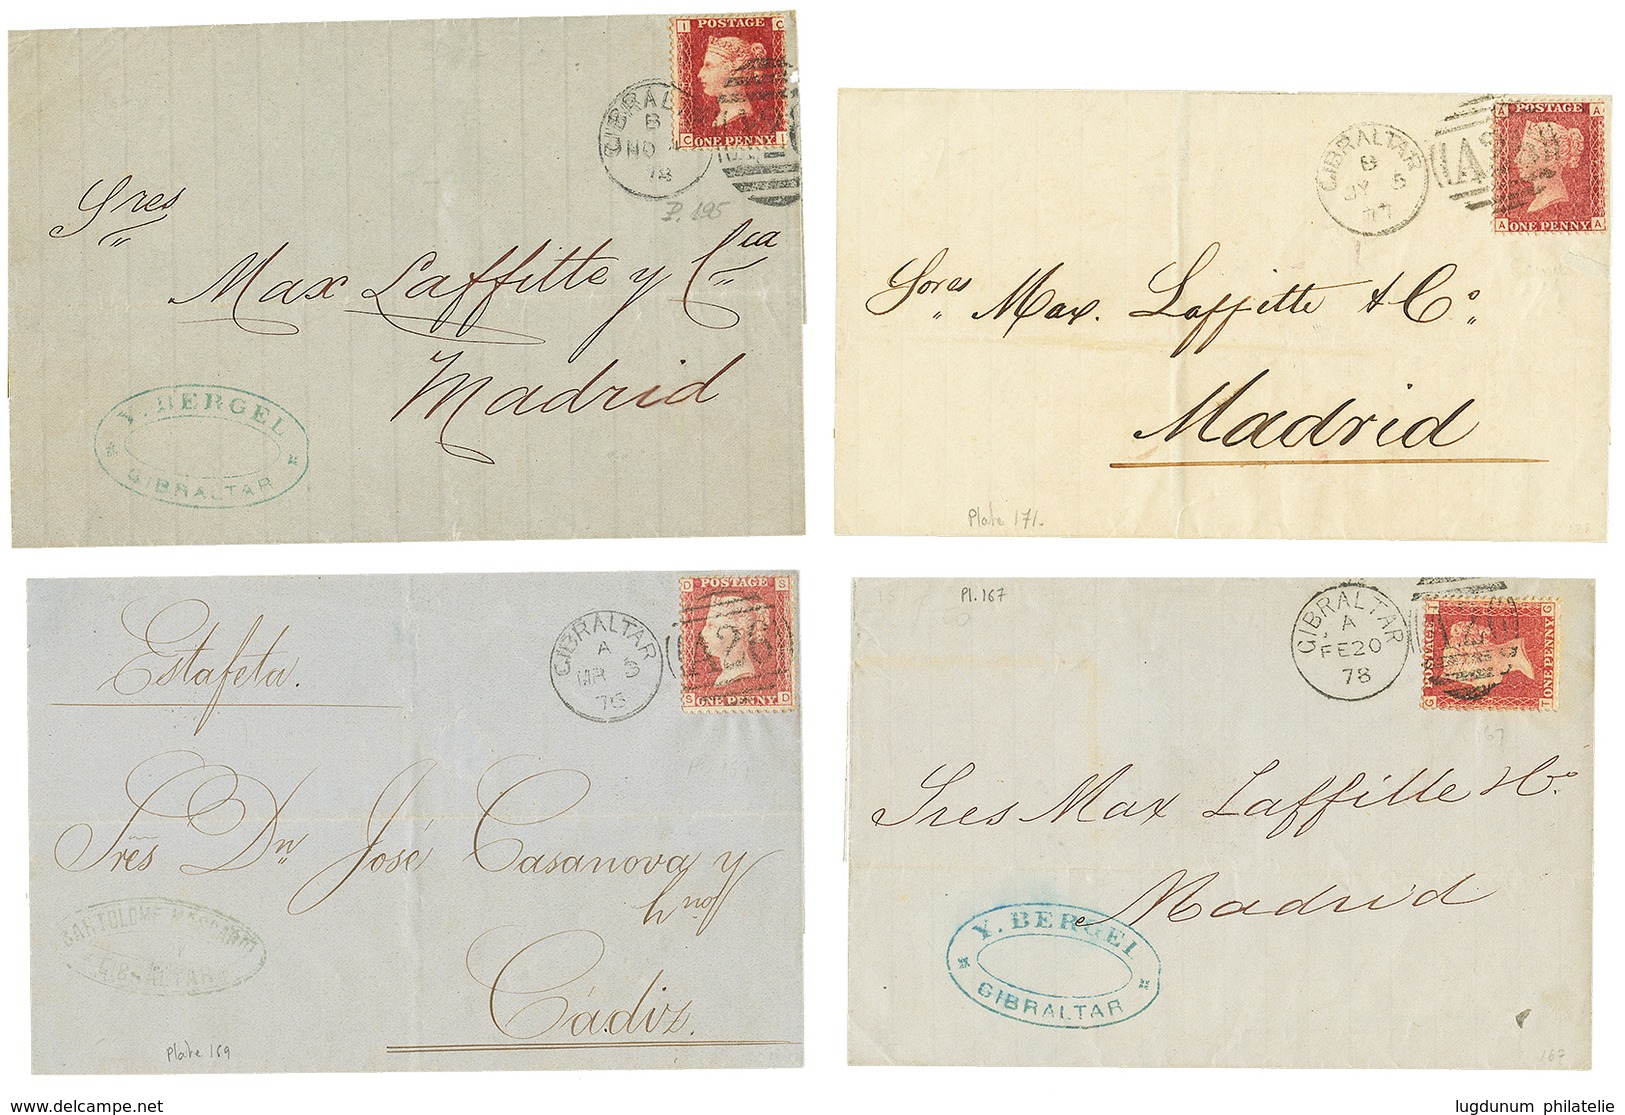 I C
POSTAGE
ONE PENNY
C I
GIBRALTAR
B
NO
78
P. 195
Sres
Max Laffitte y Cia
Madrid
Y. BERGEL
GIBRALTAR
A A
POSTAGE
A26
ONE PENNY
A A
GIBRALTAR
B
JY 5
77
Sores Max. Laffitte & Co.
Madrid
Plate 171.
D S
POSTAGE
A26
ONE PENNY
S D
GIBRALTAR
A
MR 3
76
Estafeta.
Pl. 169
Sres Dn José Casanova y
hnos
Cádiz.
BARTOLOME
GIBRALTAR
Plate 169
Pl. 167
GIBRALTAR
A
FE 20
78
T G
POSTAGE
ONE PENNY
G T
67
Sres Max Laffitte
Madrid
Y. BERGEL
GIBRALTAR
167
www.delcampe.net
lugdunum philatelie